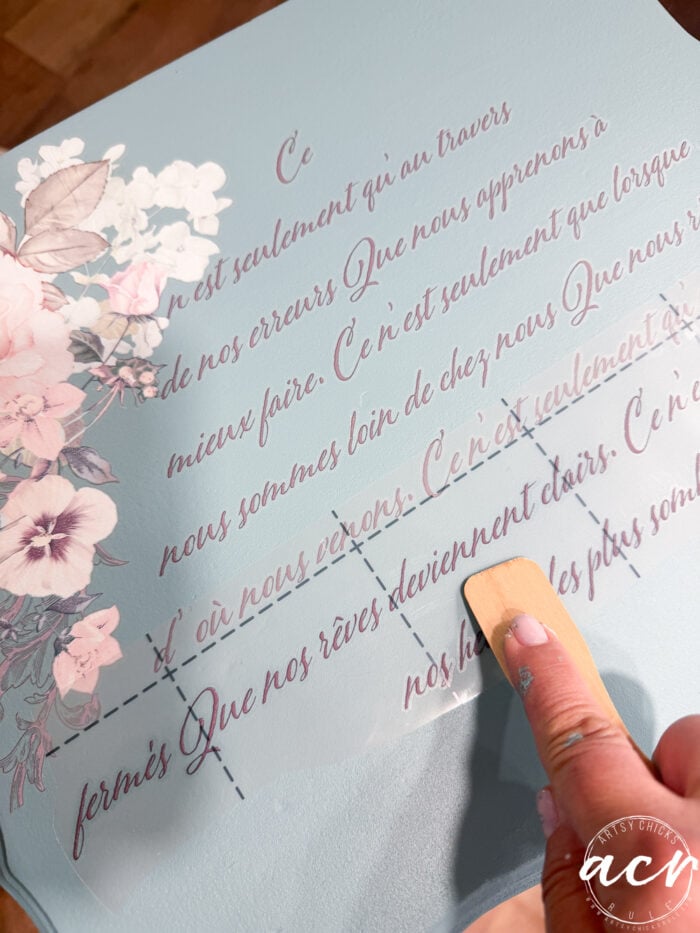 Ce
n est seulement qu' au travers
de nos erreurs Que nous apprenons à
mieux faire. Ce n' est seulement que lorsque
nous sommes loin de chez nous Que nous
d' où nous venons. Ce n' est seulement qu'
fermés Que nos rêves deviennent clairs. Ce n'
nos les plus
ARTSY CHICKS
acr
RULE